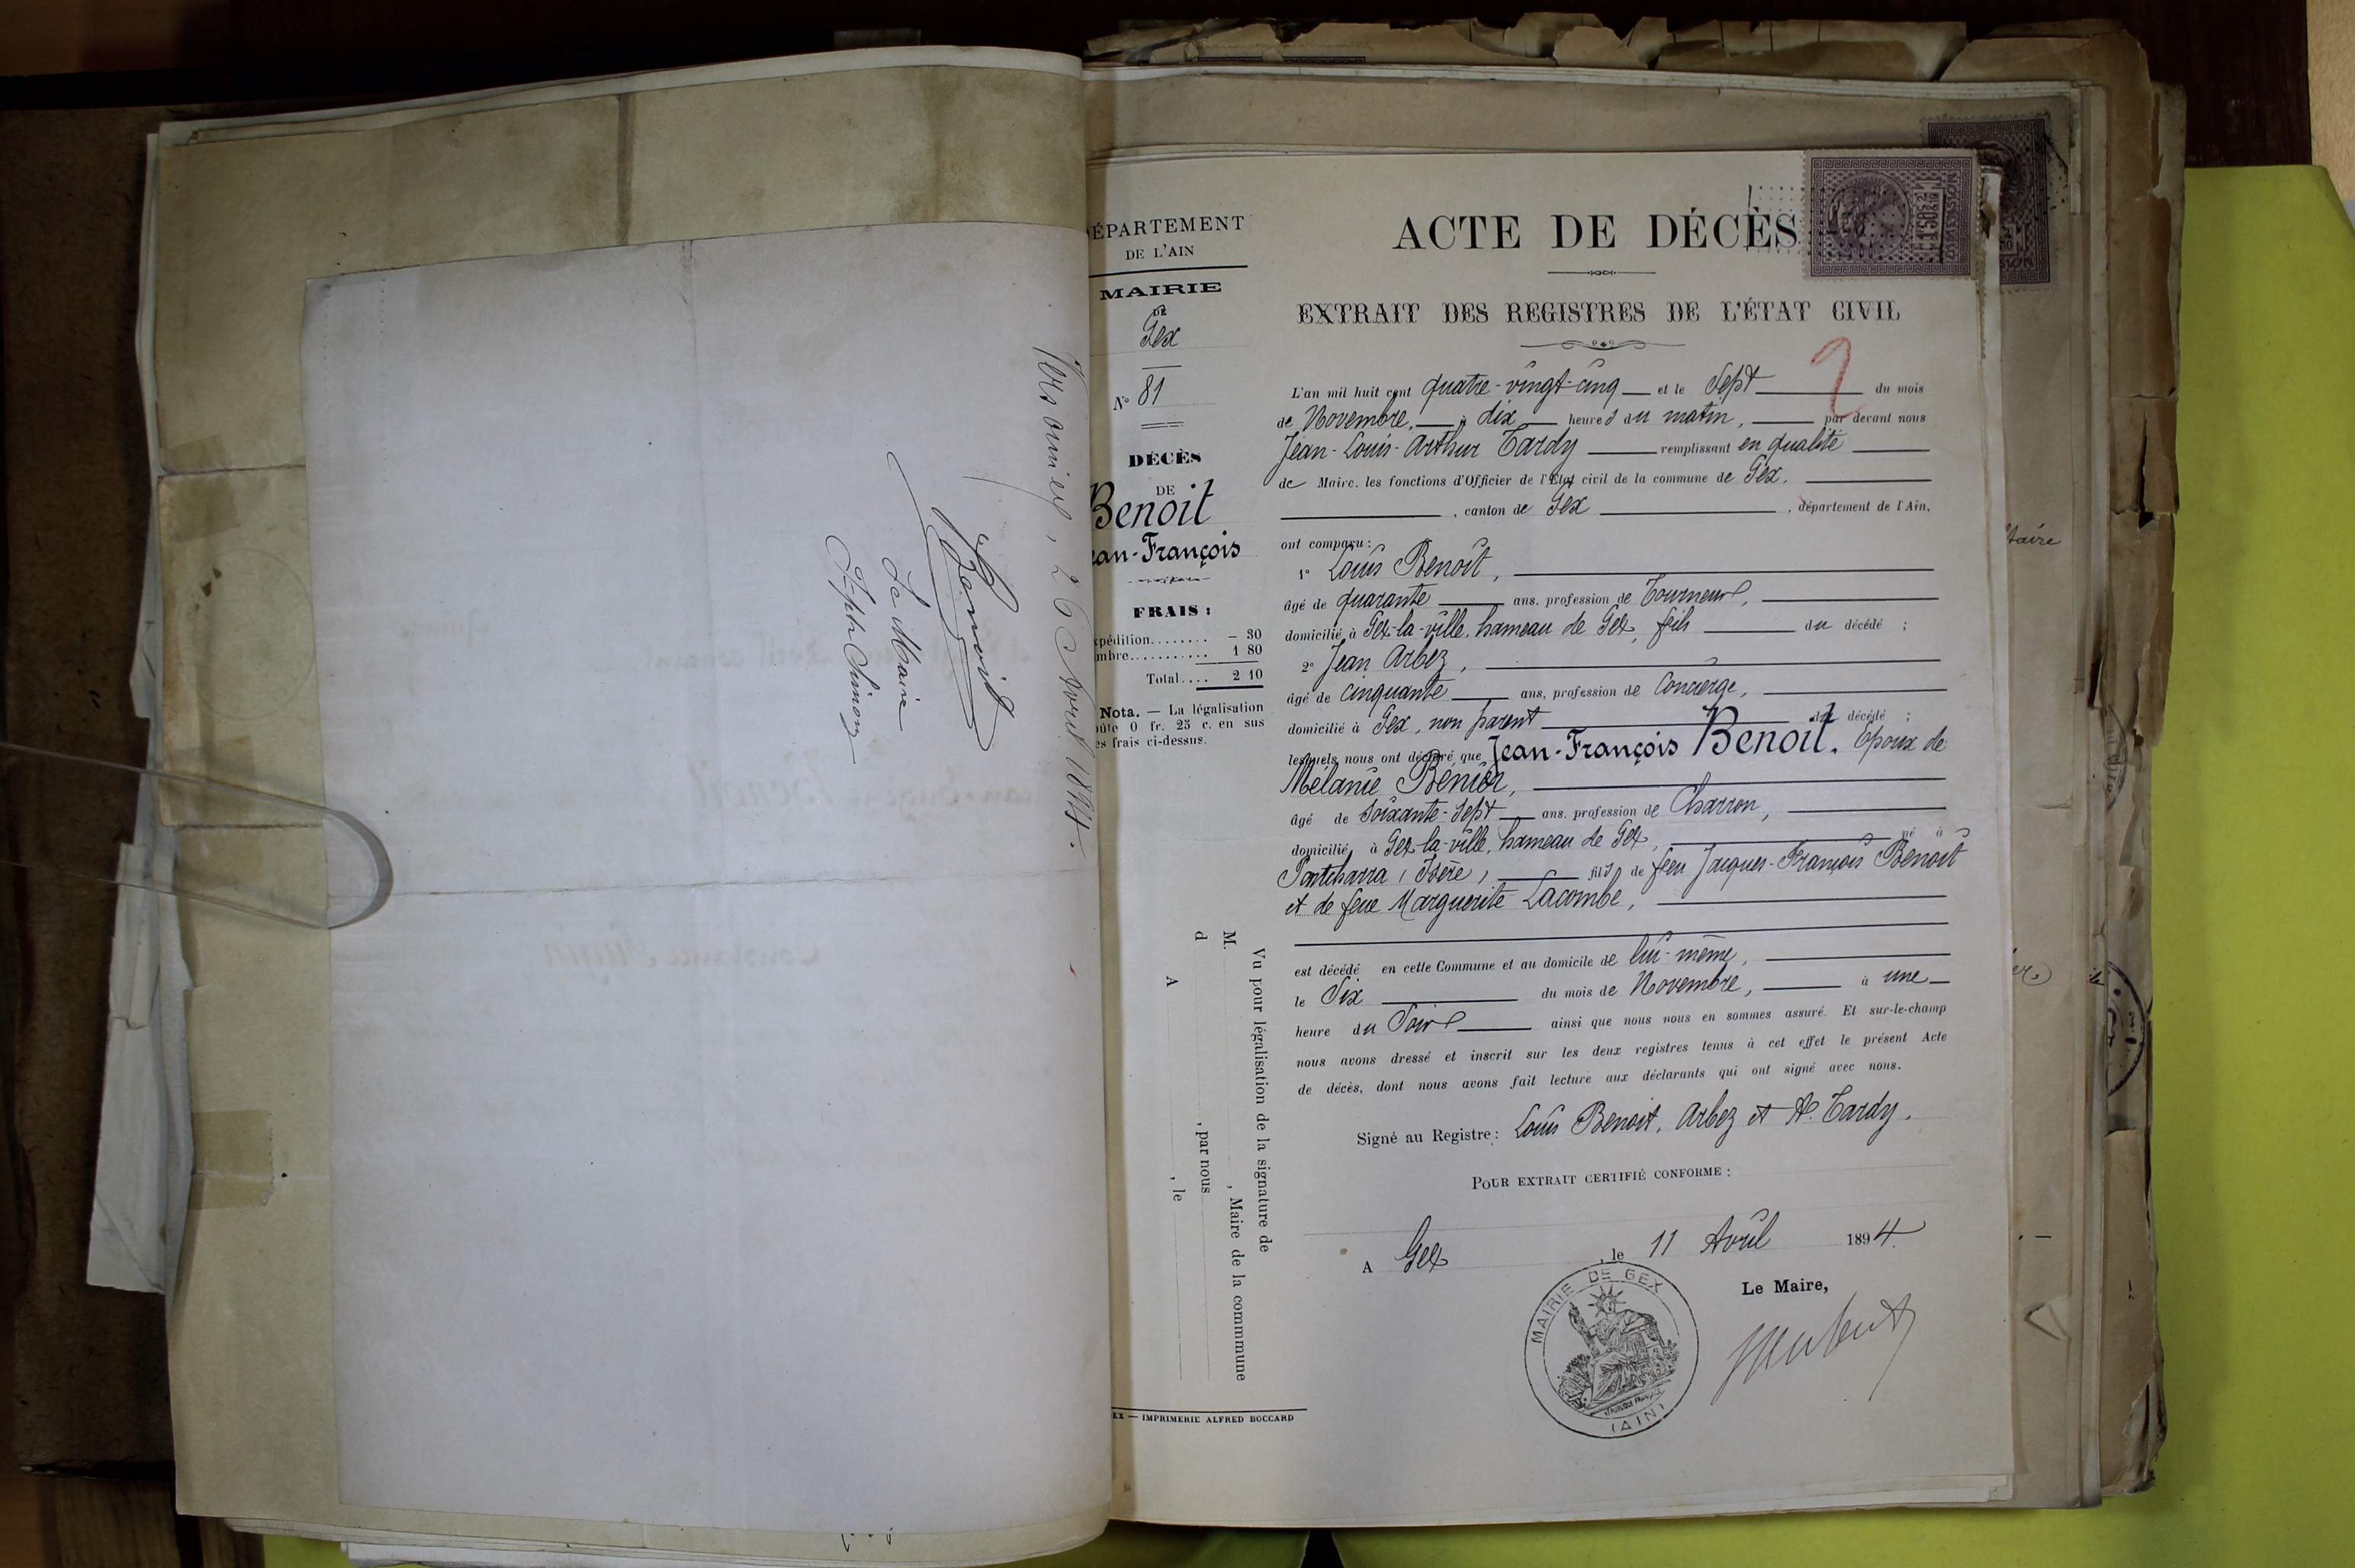 Versonnex, 26 Avril 1894.
Benoit
Le Maire
DÉPARTEMENT
DE L'AIN
MAIRIE
DE
Gex
N° 81
DÉCÈS
DE
Benoit
Jean-François
FRAIS :
xpédition........ - 30
mbre........... 1 80
Total.... 2 10
Nota. — La légalisation
oûte 0 fr. 25 c. en sus
es frais ci-dessus.
Vu pour légalisation de la signature de
M. , Maire de la commune
d , par nous
A , le
EX — IMPRIMERIE ALFRED BOCCARD
ACTE DE DÉCÈS
EXTRAIT DES REGISTRES DE L'ÉTAT CIVIL
2
L'an mil huit cent quatre-vingt-cinq et le Sept du mois
de Novembre, à dix heures du matin, par devant nous
Jean-Louis-Arthur Tardy remplissant en qualité
de Maire, les fonctions d'Officier de l'Etat civil de la commune de Gex,
, canton de Gex , département de l'Ain,
ont comparu :
1° Louis Benoit,
âgé de quarante ans, profession de Tourneur,
domicilié à Gex-la-ville, hameau de Gex, fils du décédé ;
2° Jean Arbez,
âgé de cinquante ans, profession de Concierge,
domicilié à Gex, non parent du décédé ;
lesquels nous ont déclaré que Jean-François Benoit, Epoux de
Mélanie Bénier,
âgé de soixante-sept ans, profession de Charron,
domicilié à Gex-la-ville, hameau de Gex, né à
Pontcharra (Isère) fils de feu Jacques-François Benoit
et de feue Marguerite Lacombe,
est décédé en cette Commune et au domicile de lui-même,
le Six du mois de Novembre, à une
heure du Soir ainsi que nous nous en sommes assuré. Et sur-le-champ
nous avons dressé et inscrit sur les deux registres tenus à cet effet le présent Acte
de décès, dont nous avons fait lecture aux déclarants qui ont signé avec nous.
Signé au Registre : Louis Benoit, Arbez et A. Tardy.
POUR EXTRAIT CERTIFIÉ CONFORME :
A Gex , le 11 Avril 1894.
Le Maire,
MAIRIE DE GEX
(AIN)